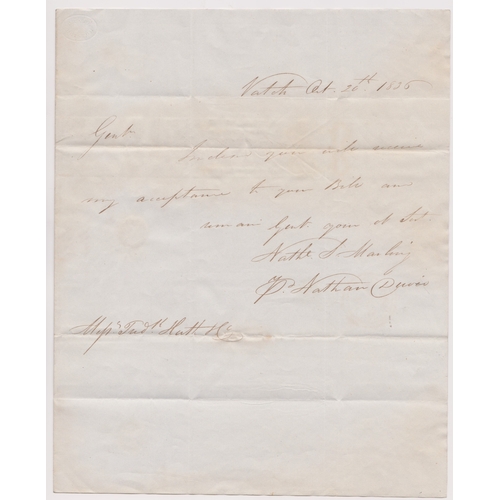 Vatch Oct. 26th 1836
Gent.
Inclosed you will
my acceptance to your Bill and
remain Gent. your ob Sert.
Nathl S Marling
Pr Nathan Driver
Messrs & Co